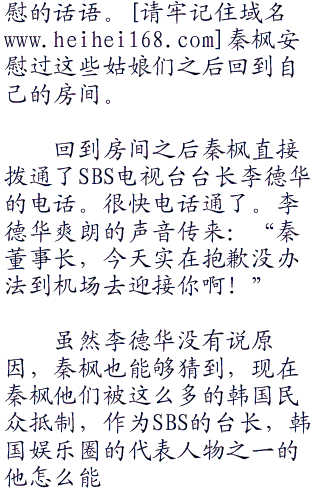 慰的话语。[请牢记住域名
www.heihei168.com]秦枫安
慰过这些姑娘们之后回到自
己的房间。
回到房间之后秦枫直接
拨通了SBS电视台台长李德华
的电话。很快电话通了。李
德华爽朗的声音传来：“秦
董事长，今天实在抱歉没办
法到机场去迎接你啊！”
虽然李德华没有说原
因，秦枫也能够猜到，现在
秦枫他们被这么多的韩国民
众抵制，作为SBS的台长，韩
国娱乐圈的代表人物之一的
他怎么能